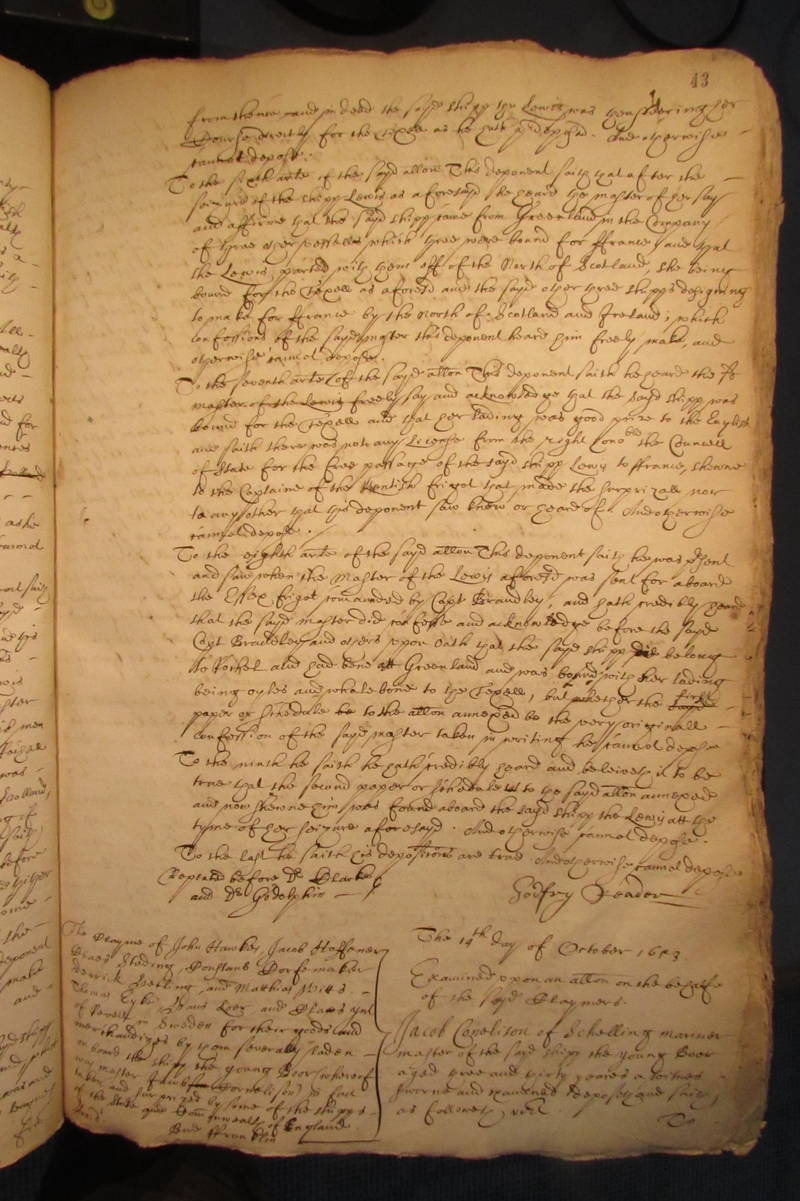 43
from thence and indeed the sayd shipp the Lewis was then steering her
Course directly for the Texell as he hath predeposed. And otherwise
cannot depose.
To the sixth arte of the sayd allon This deponent saith that after the
seizure of the shipp Lewis as aforesayd he heard the master of her say
and affirme that the sayd shipp came from Greenland in the Company
of three other vessells which three were bound for ffrance and that
the Lewis parted with them off of the North of Scotland, she being
bound for the Texell as aforesd and the sayd other three shipps designing
to make for ffrance by the North of Scotland and Ireland; which
confession of the sayd master this deponent heard him freely make, and
otherwise cannot depose.
To the seventh arte of the sayd allon This deponent saith he heard the sd
master of the Lewis freely say and acknowledge that the sayd shipp was
bound for the Texell and that her lading was good prize to the English
and saith there was not any License from the right honoble the Councell
of State for the free passage of the sayd shipp Lewis to ffrance, shewne
to the Captaine of the Kentish frigot that made the surprizall nor
to any other that this deponent saw knew or heard of. And otherwise
cannot depose.
To the eighth arte of the sayd allon This deponent saith hee was present
and saw when the Master of the Lewis aforesd was sent for aboard
the Essex frigot commanded by Capt Brandley, and hath credibly heard
that the sayd master did confesse and acknowledge before the sayd
Capt Brandley and others upon oath that the sayd shipp did belong
to Rochel and had bene att Greenland and was bound with her lading
being oyles and whale bone to the Texell, but whether the first
paper or schedule to the allon annexed be the very originall
confession of the sayd master taken in writing he cannot depose
To the ninth he saith he hath credibly heard and beleiveth it to be
true that the second paper or schedule to the sayd allon annexed
and now shewne him was found aboard the sayd shipp the Lewis att the
tyme of her seizure aforesayd. And otherwise cannot depose.
To the last he saith his depositions are true. And otherwise cannot depose
Repeated before Dr Clarke
and Dr Godolphin
Godfry Reader
The Clayme of John Hawkes, Jacob Hoffener
Claes Steding, Constans Dorfemaker
Derrick and Matthias Witts
Thomas Eyke, Hans Looz and Claes
of in Sweden for their goods and
merchandizes by them severally laden
on board the shipp the young Boor whereof
was master Jacob Cornelison in
and surprized by some of the shipps
of the State of the Common wealth of England.
Budd ffrancklin
The 14th day of October 1653.
Examined upon an allon on the behalfe
of the sayd Claymers.
Jacob Cornelison of Schelling mariner
master of the sayd shipp the young Boor
aged three and thirty yeares a witnes
sworne and examined deposeth and saith
as followeth vizt
To